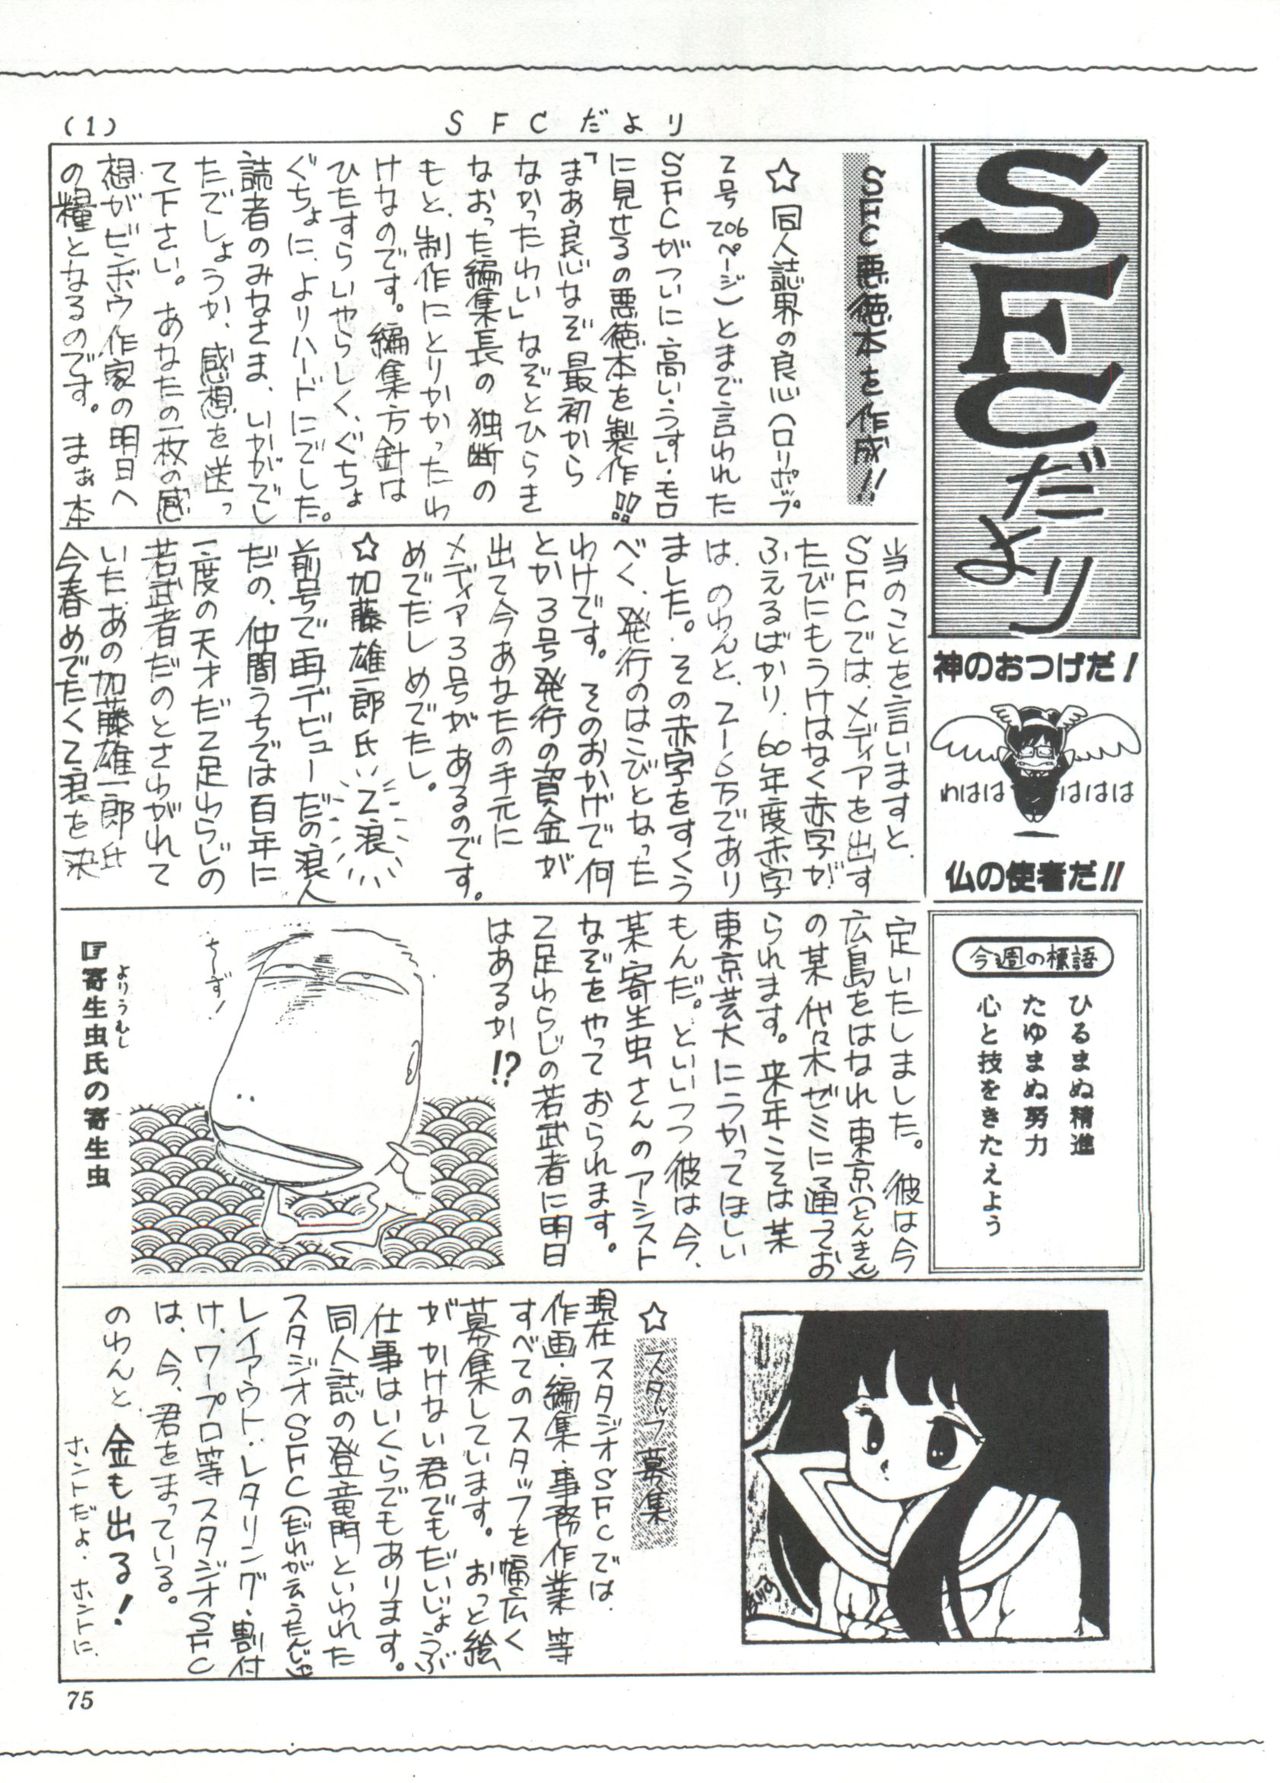 (1)
SFCだより
SFCだより
神のおつげだ!
わははは
はははは
仏の使者だ!!
今週の標語
ひるまぬ精進
たゆまぬ努力
心と技をきたえよう
SFC悪徳本を作成!!
☆同人誌界の良心(ロリポップ
2号206ページ)とまで言われた
SFCがついに高い・うすい・モロ
に見せるの悪徳本を製作!!
「まあ良心なぞ最初から
なかったわい」なぞとひらき
なおった編集長の独断の
もと、制作にとりかかったわ
けなのです。編集方針は
ひたすらいやらしく、ぐちょ
ぐちょに、よりハードにでした。
読者のみなさま、いかがでし
たでしょうか、感想を送っ
て下さい。あなたの一枚の感
想がビンボウ作家の明日へ
の糧となるのです。まぁ本
当のことを言いますと、
SFCでは、メディアを出す
たびにもうけはなく赤字が
ふえるばかり、60年度赤字
は、のわんと、2〜6万であり
ました。その赤字をすくう
べく、発行のはこびとなった
わけです。そのおかげで何
とか3号発行の資金が
出て今あなたの手元に
メディア3号があるのです。
めでたしめでたし。
☆加藤雄一郎氏 2浪
前号で再デビューだの浪人
だの、仲間うちでは百年に
一度の天才だ2足わらじの
若武者だのとさわがれて
いた、あの加藤雄一郎氏
今春めでたく2浪を決
定いたしました。彼は今
広島をはなれ東京(とんきん)
の某代々木ゼミに通ってお
られます。来年こそは某
東京芸大にうかってほしい
もんだ。といいつつ彼は今、
某寄生虫さんのアシスト
なぞをやっておられます。
2足わらじの若武者に明日
はあるか!?
ちーす!
☞寄生虫氏の寄生虫
よりうむし
☆スタッフ募集
現在スタジオSFCでは、
作画・編集・事務作業等
すべてのスタッフを幅広く
募集しています。おっと絵
がかけない君でもだいじょうぶ
仕事はいくらでもあります。
同人誌の登竜門といわれた
スタジオSFC(だれが云うたんじゃ)
レイアウト・レタリング・割付
け、ワープロ等スタジオSFC
は、今、君をまっている。
のわんと金も出る!
ホントだよ・ホントに、
75